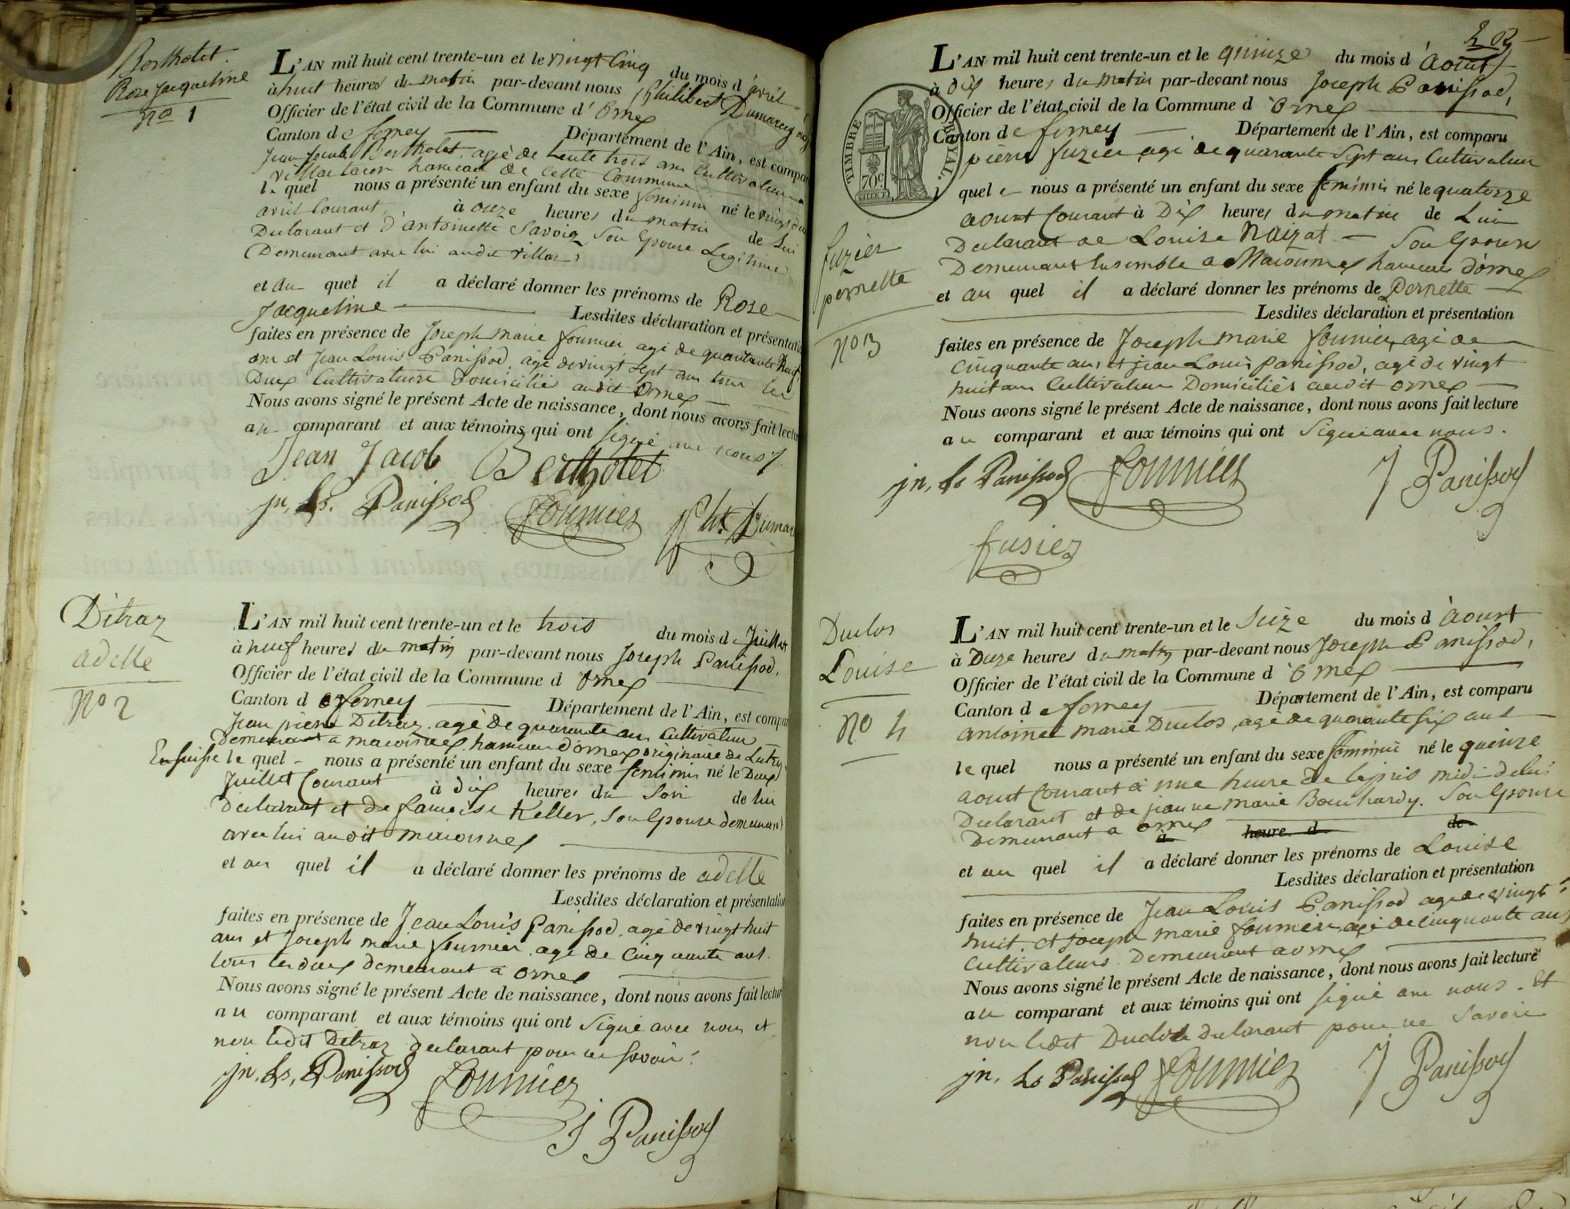 Bertholet
Rose Jacqueline
No 1
L'AN mil huit cent trente-un et le vingt cinq du mois d'avril
à huit heures du matin par-devant nous Philibert Dumarey
Officier de l'état civil de la Commune d'Ornex
Canton de ferney Département de l'Ain, est compar
Jean Jacob Bertholet agé de trente trois ans Cultivateur
hameau de cette Commune
le quel nous a présenté un enfant du sexe feminin né le
avril Courant à onze heures du matin de Lui
Declarant et d'antoinette Savoie Son Epouse Legitime
Demeurant avec lui audit villard
et au quel il a déclaré donner les prénoms de Rose
Jacqueline Lesdites déclaration et présentati
faites en présence de Joseph marie fournier agé de quarante neuf
ans et Jean Louis Panissod, agé de vingt sept ans tous les
Deux Cultivateurs Domiciliés audit Ornex
Nous avons signé le présent Acte de naissance, dont nous avons fait lectur
au comparant et aux témoins qui ont signé avec nous
Jean Jacob Berthotet
jn. Ls. Panissod fournier Pht Dumar
Détraz
adelle
No 2
L'AN mil huit cent trente-un et le trois du mois de Juillet
à neuf heures du matin par-devant nous Joseph Panissod,
Officier de l'état civil de la Commune d'Ornex
Canton de ferney Département de l'Ain, est compa
Jean pierre Détraz, agé de quarante ans Cultivateur
demeurant a maconnex hameau d'ornex originaire de Lutry
En Suisse le quel nous a présenté un enfant du sexe feminin né le Deux
Juillet Courant à dix heures du Soir de lui
Declarant et de francoise Keller, Son Epouse demeurant
avec lui audit maconnex
et au quel il a déclaré donner les prénoms de adelle
Lesdites déclaration et présentation
faites en présence de Jean Louis Panissod, agé de vingt huit
ans et Joseph marie fournier agé de Cinquante ans.
tous les deux demeurant à ornex
Nous avons signé le présent Acte de naissance, dont nous avons fait lectur
au comparant et aux témoins qui ont Signé avec nous et
non ledit Détraz declarant pour ne savoir.
jn. Ls. Panissod fournier
J Panissod
TIMBRE ROYAL.
70c
fuzier
pernette
No 3
L'AN mil huit cent trente-un et le quinze du mois d'Aoust
à dix heures du matin par-devant nous Joseph Panissod,
Officier de l'état civil de la Commune d'Ornex
Canton de ferney Département de l'Ain, est comparu
pierre fuzier agé de quarante Sept ans Cultivateur
quel e nous a présenté un enfant du sexe feminin né le quatorze
aoust Courant à Dix heures du matin de Lui
Declarant de Louise Naizat Son Epouse
Demeurant Ensemble a Maconnex hameau d'ornex
et au quel il a déclaré donner les prénoms de Pernette
Lesdites déclaration et présentation
faites en présence de Joseph marie fournier agé de
Cinquante ans et jean Louis panissod, agé de vingt
huit ans Cultivateur Domiciliés audit ornex
Nous avons signé le présent Acte de naissance, dont nous avons fait lecture
au comparant et aux témoins qui ont Signé avec nous.
jn. Ls Panissod fournier J Panissod
fusier
Duclos
Louise
No 4
L'AN mil huit cent trente-un et le Seize du mois d'Aoust
à Onze heures du matin par-devant nous Joseph Panissod,
Officier de l'état civil de la Commune d'Ornex
Canton de ferney Département de l'Ain, est comparu
antoine marie Duclos, agé de quarante six ans
le quel nous a présenté un enfant du sexe feminin né le quinze
aoust Courant à une heure de lapres midi de lui
Declarant et de jeanne marie Bouchardy. Son Epouse
Demeurant a ornex à heure d de
et au quel il a déclaré donner les prénoms de Louise
Lesdites déclaration et présentation
faites en présence de Jean Louis Panissod agé de vingt
huit. et joseph marie fournier agé de cinquante ans
Cultivateurs Demeurant a ornex
Nous avons signé le présent Acte de naissance, dont nous avons fait lecture
au comparant et aux témoins qui ont signé avec nous. Et
non ledit Duclos declarant pour ne Savoir
jn. Ls Panissod fournier J Panissod